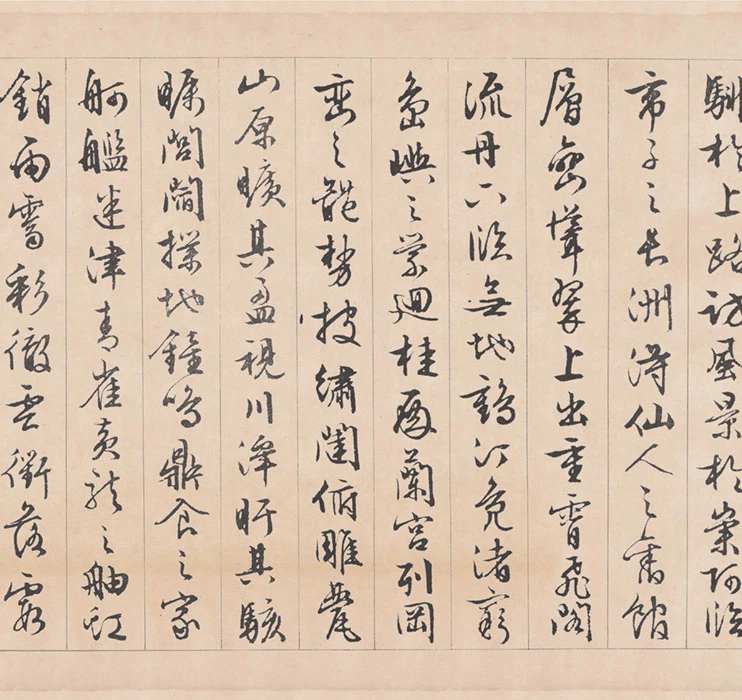 騑於上路訪風景於崇阿臨
帝子之長洲得仙人之舊館
層巒聳翠上出重霄飛閣
流丹下臨無地鶴汀鳧渚窮
島嶼之縈迴桂殿蘭宮列岡
巒之體勢披繡闥俯雕甍
山原曠其盈視川澤盱其駭
矚閭閻撲地鐘鳴鼎食之家
舸艦迷津青雀黃龍之舳虹
銷雨霽彩徹雲衢落霞